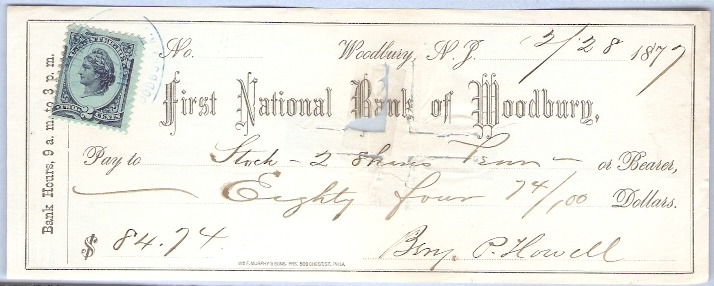 No. Woodbury, N. J. 2/28 1877
First National Bank of Woodbury,
Pay to Stock - 2 Shares Penn - or Bearer,
Eighty four 74/.00 Dollars.
$ 84.74 Benj. P. Howell
Bank Hours, 9 a. m. to 3 p. m.
TWO CENTS
WM F. MURPHY'S SONS. PRS. 509 CHEST. ST. PHILA.